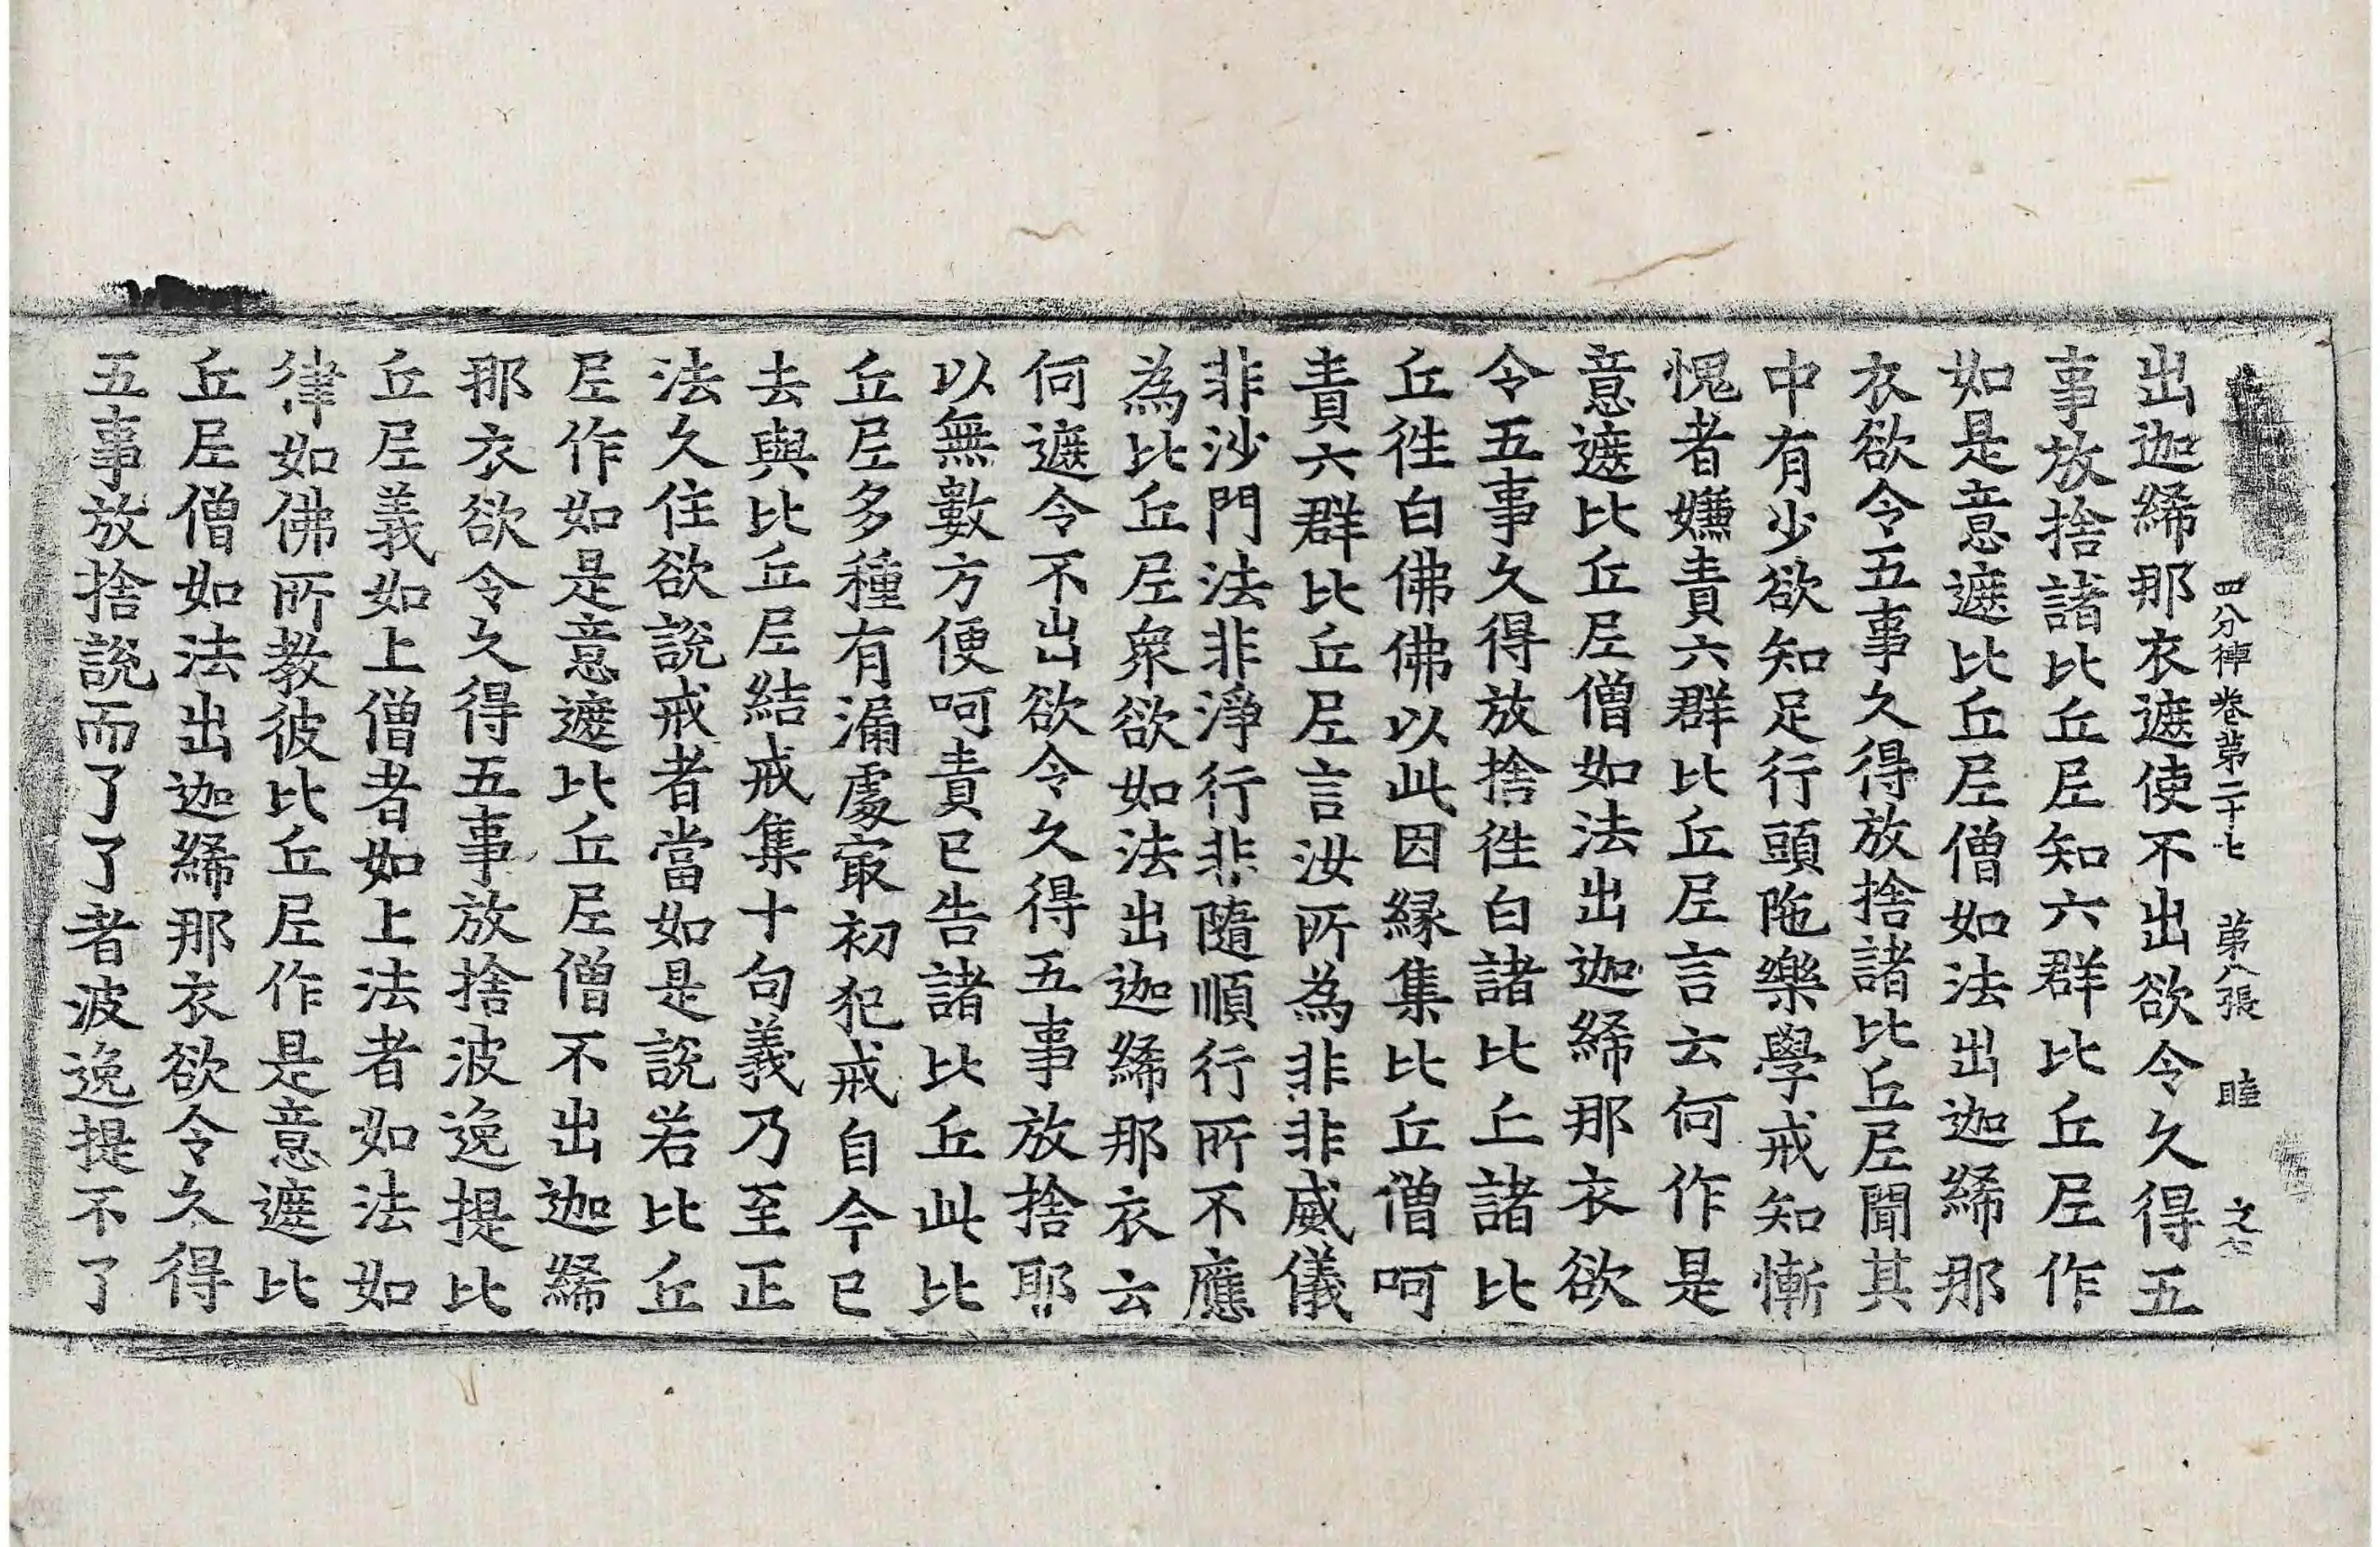 四分律卷第二十七 第八張 睦
出迦絺那衣遮使不出欲令久得五
事放捨諸比丘尼知六群比丘尼作
如是意遮比丘尼僧如法出迦絺那
衣欲令五事久得放捨諸比丘尼聞其
中有少欲知足行頭陁樂學戒知慚
愧者嫌責六群比丘尼言云何作是
意遮比丘尼僧如法出迦絺那衣欲
令五事久得放捨徃白諸比丘諸比
丘徃白佛佛以此因縁集比丘僧呵
責六群比丘尼言汝所為非非威儀
非沙門法非淨行非隨順行所不應
為比丘尼衆欲如法出迦絺那衣云
何遮令不出欲令久得五事放捨耶
以無數方便呵責已告諸比丘此比
丘尼多種有漏處冣初犯戒自今已
去與比丘尼結戒集十句義乃至正
法久住欲說戒者當如是說若比丘
尼作如是意遮比丘尼僧不出迦絺
那衣欲令久得五事放捨波逸提比
丘尼義如上僧者如上法者如法如
律如佛所教彼比丘尼作是意遮比
丘尼僧如法出迦絺那衣欲令久得
五事放捨說而了了者波逸提不了